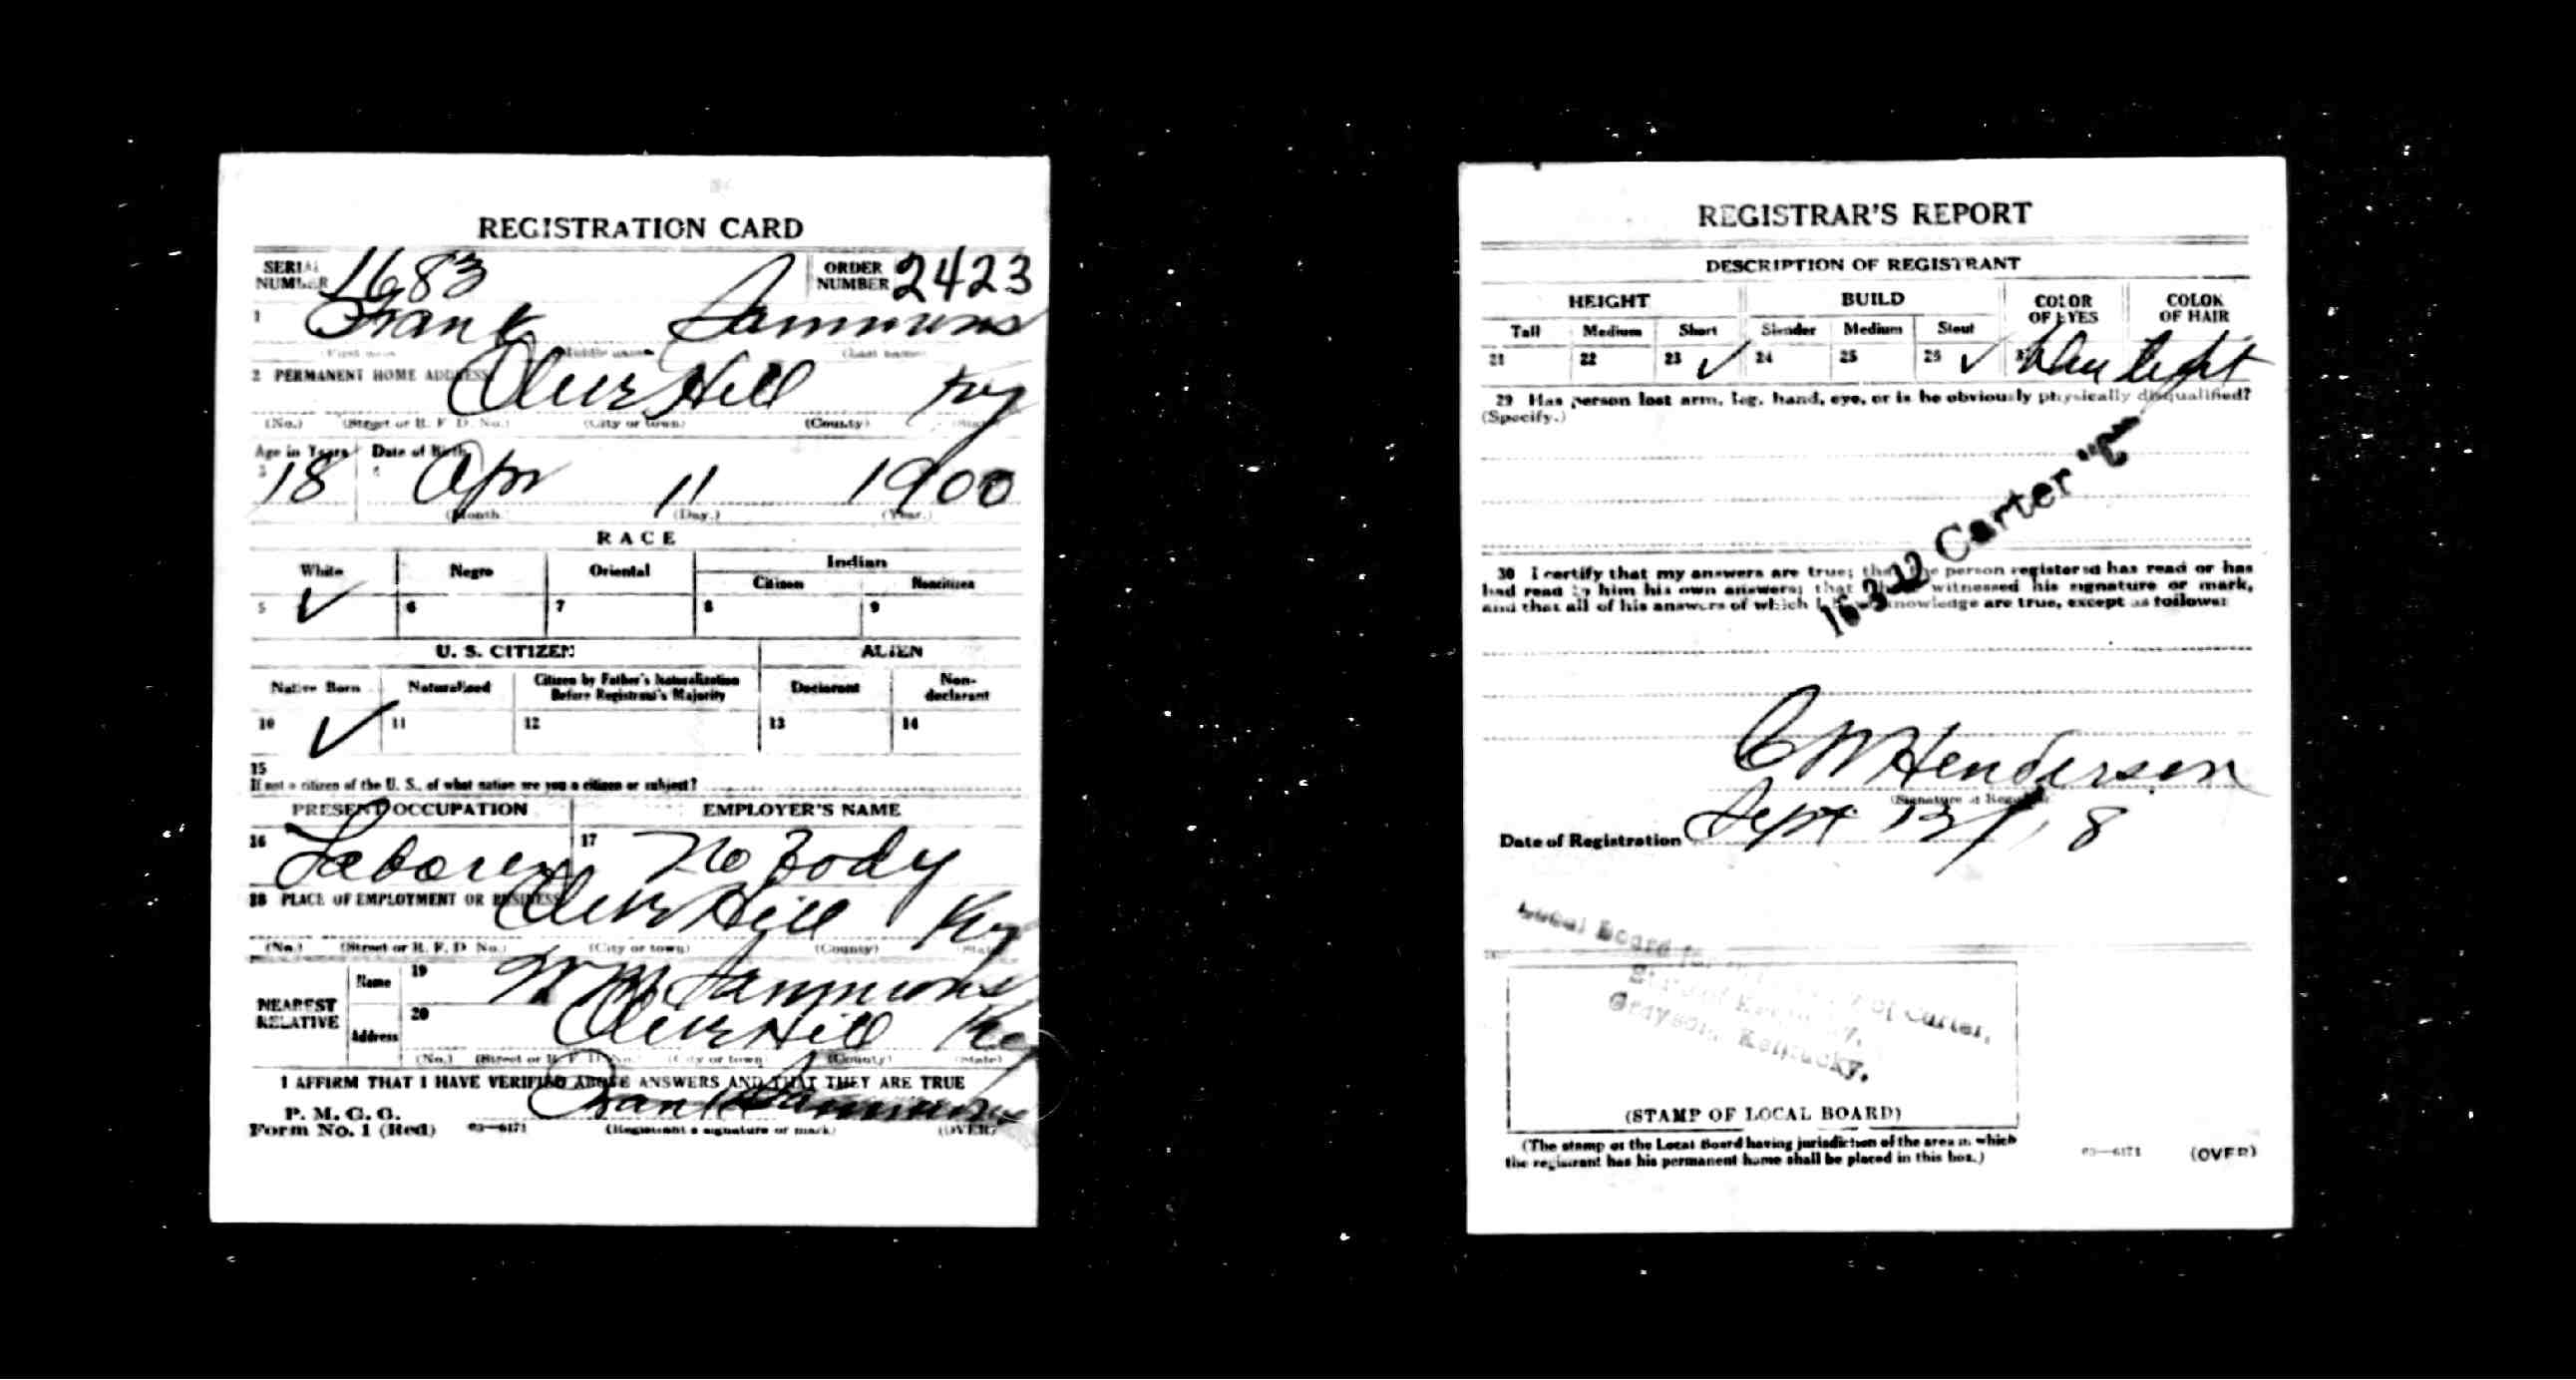 REGISTRATION CARD
SERIAL NUMBER 1683 ORDER NUMBER 2423
1 Frank Sammons
(First name) (Middle name) (Last name)
2 PERMANENT HOME ADDRESS
Olive Hill Ky
(No.) (Street or R. F. D. No.) (City or town) (County) (State)
Age in Years Date of Birth
3 18 4 Apr 11 1900
(Month.) (Day.) (Year.)
RACE
White Negro Oriental Indian
Citizen Noncitizen
5 ✓ 6 7 8 9
U. S. CITIZEN ALIEN
Native Born Naturalized Citizen by Father's Naturalization Before Registrant's Majority Declarant Non-declarant
10 ✓ 11 12 13 14
15
If not a citizen of the U. S., of what nation are you a citizen or subject?
PRESENT OCCUPATION EMPLOYER'S NAME
16 Laborer 17 No Body
18 PLACE OF EMPLOYMENT OR BUSINESS
Olive Hill Ky
(No.) (Street or R. F. D. No.) (City or town) (County) (State)
NEAREST RELATIVE
Name 19 Wm Sammons
Address 20 Olive Hill Ky
(No.) (Street or R. F. D. No.) (City or town) (County) (State)
I AFFIRM THAT I HAVE VERIFIED ABOVE ANSWERS AND THAT THEY ARE TRUE
P. M. G. O.
Form No. 1 (Red) 03—6171 Frank Sammons
(Registrant's signature or mark) (OVER)
REGISTRAR'S REPORT
DESCRIPTION OF REGISTRANT
HEIGHT BUILD COLOR OF EYES COLOR OF HAIR
Tall Medium Short Slender Medium Stout
21 22 23 ✓ 24 25 26 ✓ light
29 Has person lost arm, leg, hand, eye, or is he obviously physically disqualified?
(Specify.)
16-3-12 Carter "C"
30 I certify that my answers are true; that the person registered has read or has
had read to him his own answers; that I have witnessed his signature or mark,
and that all of his answers of which I have knowledge are true, except as follows:
C M Henderson
(Signature of Registrar)
Date of Registration Sept 12/18
Local Board for County of Carter,
State of Kentucky,
Grayson, Kentucky.
(STAMP OF LOCAL BOARD)
(The stamp of the Local Board having jurisdiction of the area in which
the registrant has his permanent home shall be placed in this box.)
03—6171 (OVER)